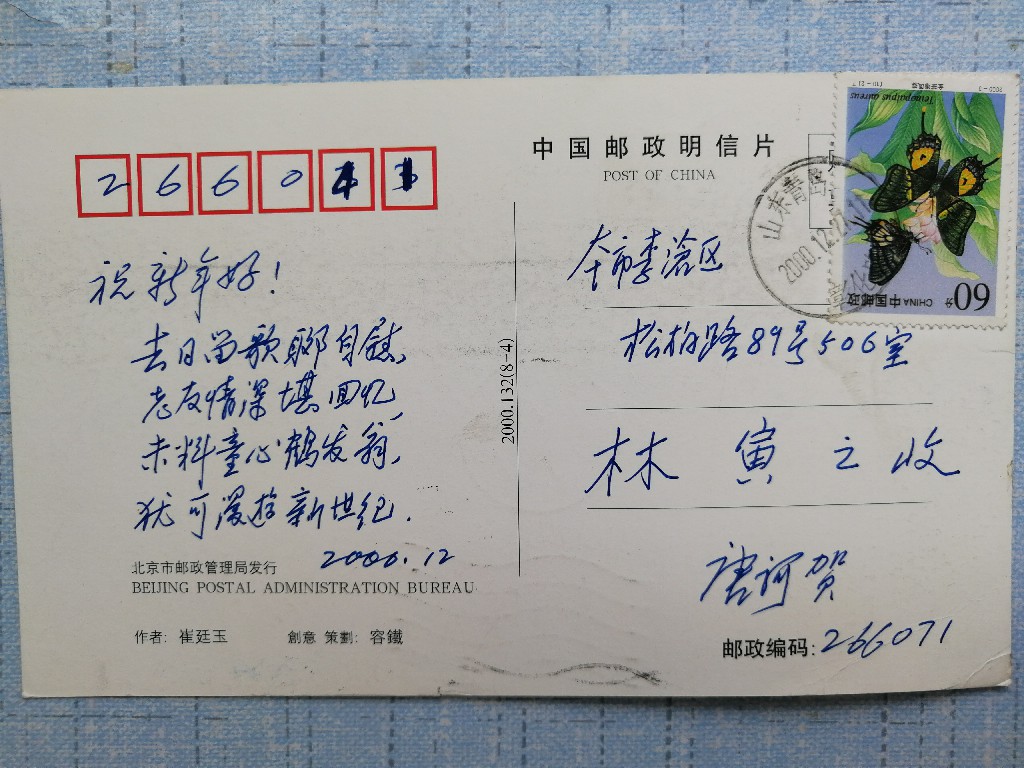 266041
中国邮政明信片
POST OF CHINA
祝新年好!
去日留歌聊自慰,
老友情深堪回忆,
未料童心鹤发翁,
犹可漫游新世纪.
2000.12
北京市邮政管理局发行
BEIJING POSTAL ADMINISTRATION BUREAU
作者: 崔廷玉
創意 策劃: 容鐵
2000.132(8-4)
本市李沧区
松柏路89号506室
林寅之收
唐诃贺
邮政编码: 266071
山东青岛
2000.12.2
60分
CHINA 中国邮政
Teinopalpus aureus
金斑喙凤蝶